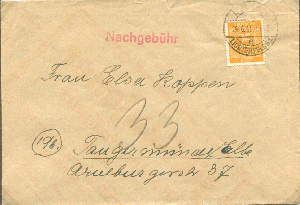 Nachgebühr
Frau Elsa Koppen
33
(19b)
Tangermünde/Elbe
Arneburgerstr 37